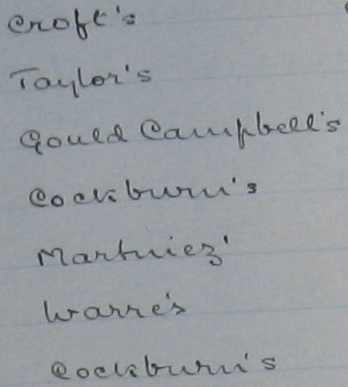 Croft's
Taylor's
Gould Campbell's
Cockburn's
Martinez'
Warre's
Cockburn's